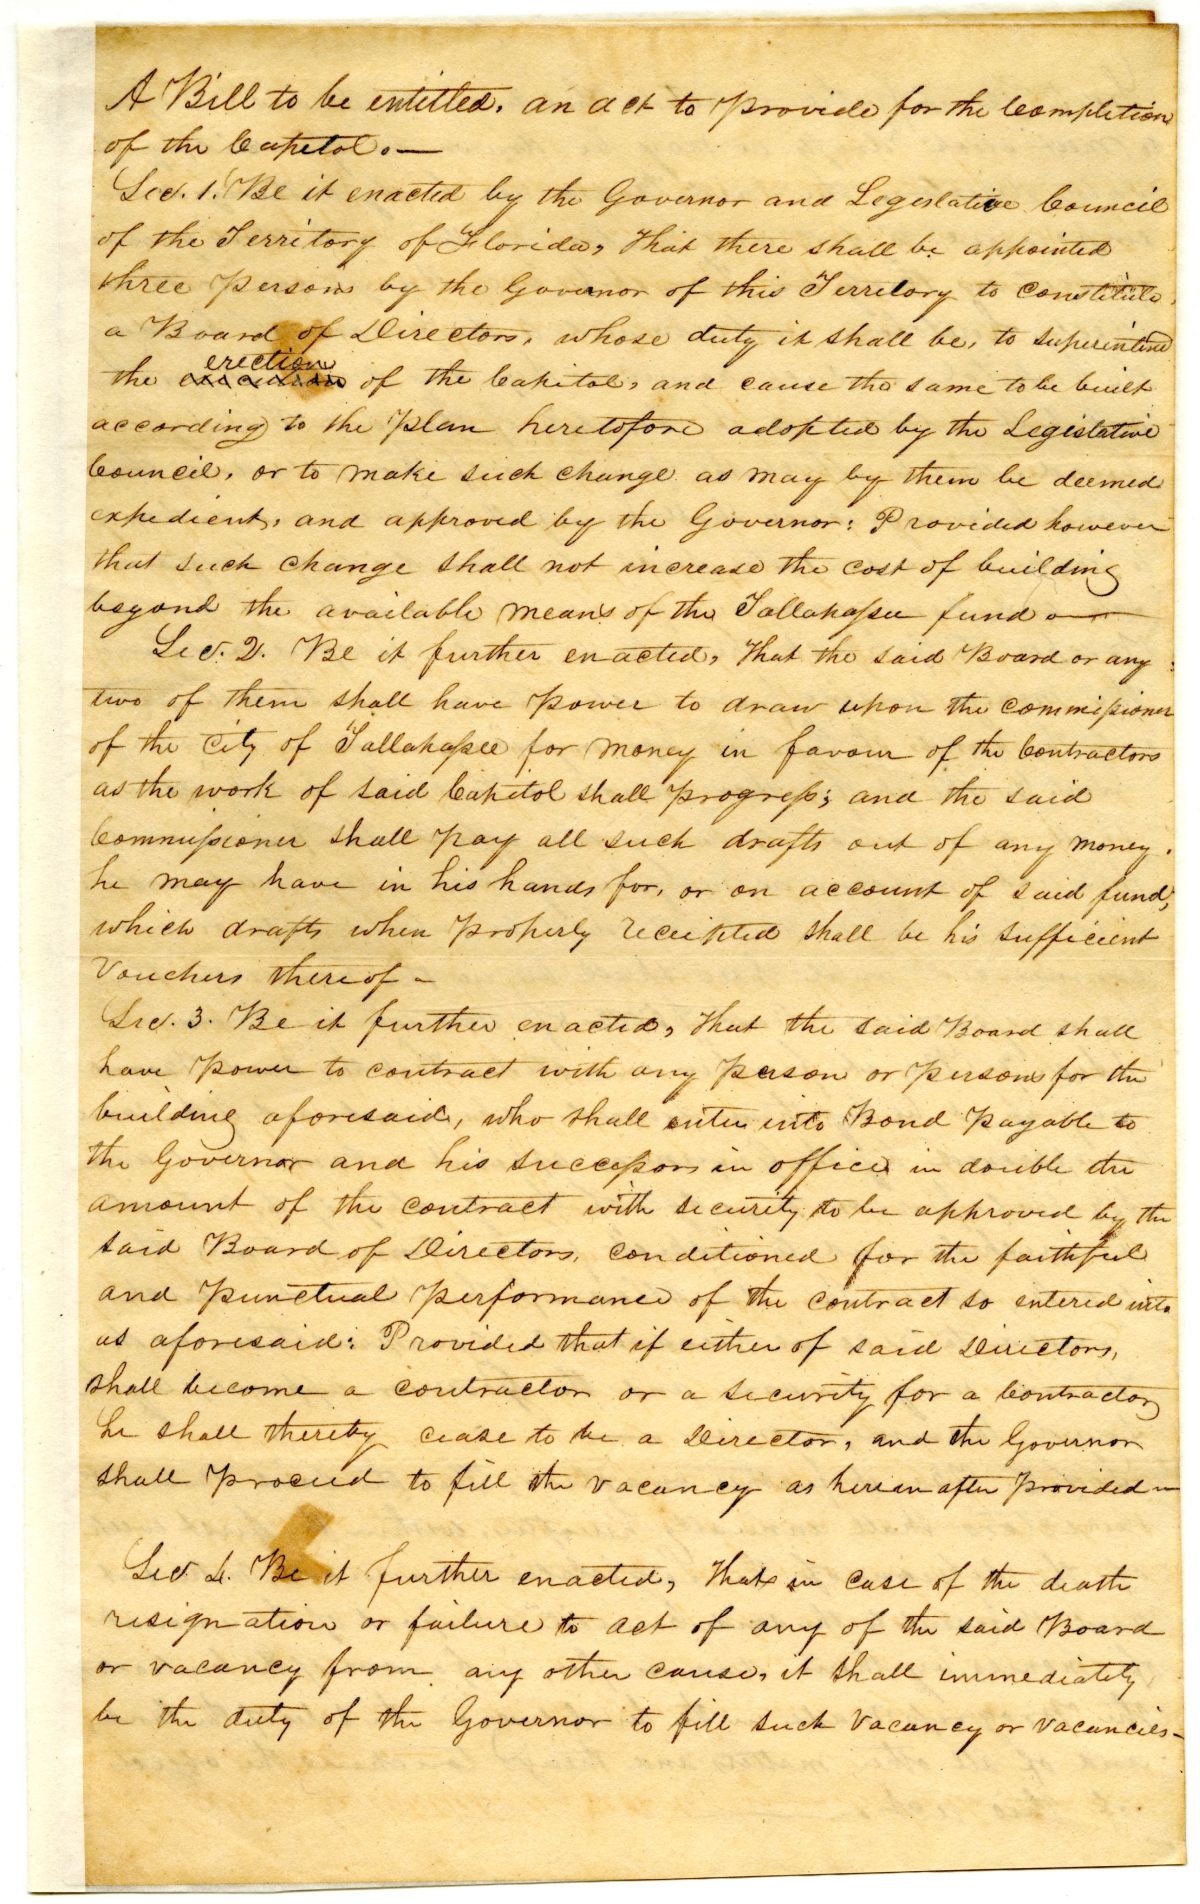 A Bill to be entitled, an act to provide for the Completion
of the Capitol.—
Sec. 1. Be it enacted by the Governor and Legislative Council
of the Territory of Florida, That there shall be appointed
three persons by the Governor of this Territory to constitute
a Board of Directors, whose duty it shall be, to superintend
erection
the of the Capitol, and cause the same to be built
according to the plan heretofore adopted by the Legislative
Council, or to make such change as may by them be deemed
expedient, and approved by the Governor: Provided however
that such change shall not increase the cost of building
beyond the available means of the Tallahassee fund —
Sec. 2. Be it further enacted, That the said Board or any
two of them shall have power to draw upon the commissioner
of the City of Tallahassee for money in favour of the Contractors
as the work of said Capitol shall progress; and the said
Commissioner shall pay all such drafts out of any money
he may have in his hands for, or on account of said fund,
which drafts when properly receipted shall be his sufficient
Vouchers thereof –
Sec. 3. Be it further enacted, That the said Board shall
have power to contract with any person or persons for the
building aforesaid, who shall enter into Bond payable to
the Governor and his successors in office in double the
amount of the contract with security to be approved by the
said Board of Directors, conditioned for the faithful
and punctual performance of the contract so entered into
as aforesaid: Provided that if either of said Directors,
shall become a contractor or a security for a Contractor,
he shall thereby cease to be a Director, and the Governor
shall proceed to fill the vacancy as herein after provided –
Sec 4. Be it further enacted, That in case of the death
resignation or failure to act of any of the said Board
or vacancy from any other cause, it shall immediately
be the duty of the Governor to fill such vacancy or vacancies –